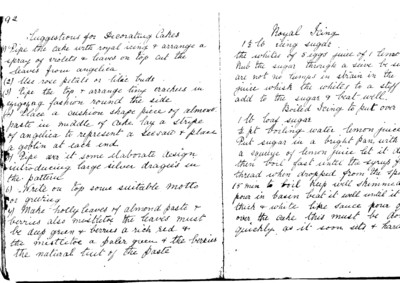 92
Suggestions for Decorating Cakes
1) Pipe the cake with royal icing & arrange a
spray of violets & leaves on top cut the
leaves from angelica
2) Use rose petals or lilac buds
3) Ice the top & arrange tiny crackers in
zigzag fashion round the side
4) Place a cushion shape piece of almond
paste in middle of cake lay a stripe
of angelica to represent a seesaw & place
a goblin at each end.
5) Pipe in it some elaborate design
introducing also large silver dragees in
the pattern
6) Write on top some suitable motto
or greeting
7) Make holly leaves of almond paste &
berries also mistletoe the leaves must
be deep green & berries a rich red &
the mistletoe a paler green & the berries
the natural tint of the paste
Royal Icing
1 ½ lb Icing sugar
the whites of 5 eggs juice of 1 lemon
Rub the sugar through a sieve be su
are no lumps in strain in the
juice whisk the whites to a stiff
add to the sugar & beat well.
Boiled Icing to put over
1 lb loaf sugar
½ pt boiling water lemon juice
Put sugar in a bright pan with
a squeeze of lemon juice let it d
then boil fast until the syrup f
thread when dropped from the spo
15 min to boil keep well skimmed
pour in basin beat it well until it
thick & white like sauce pour o
over the cake this must be do
quickly as it soon sets & hard